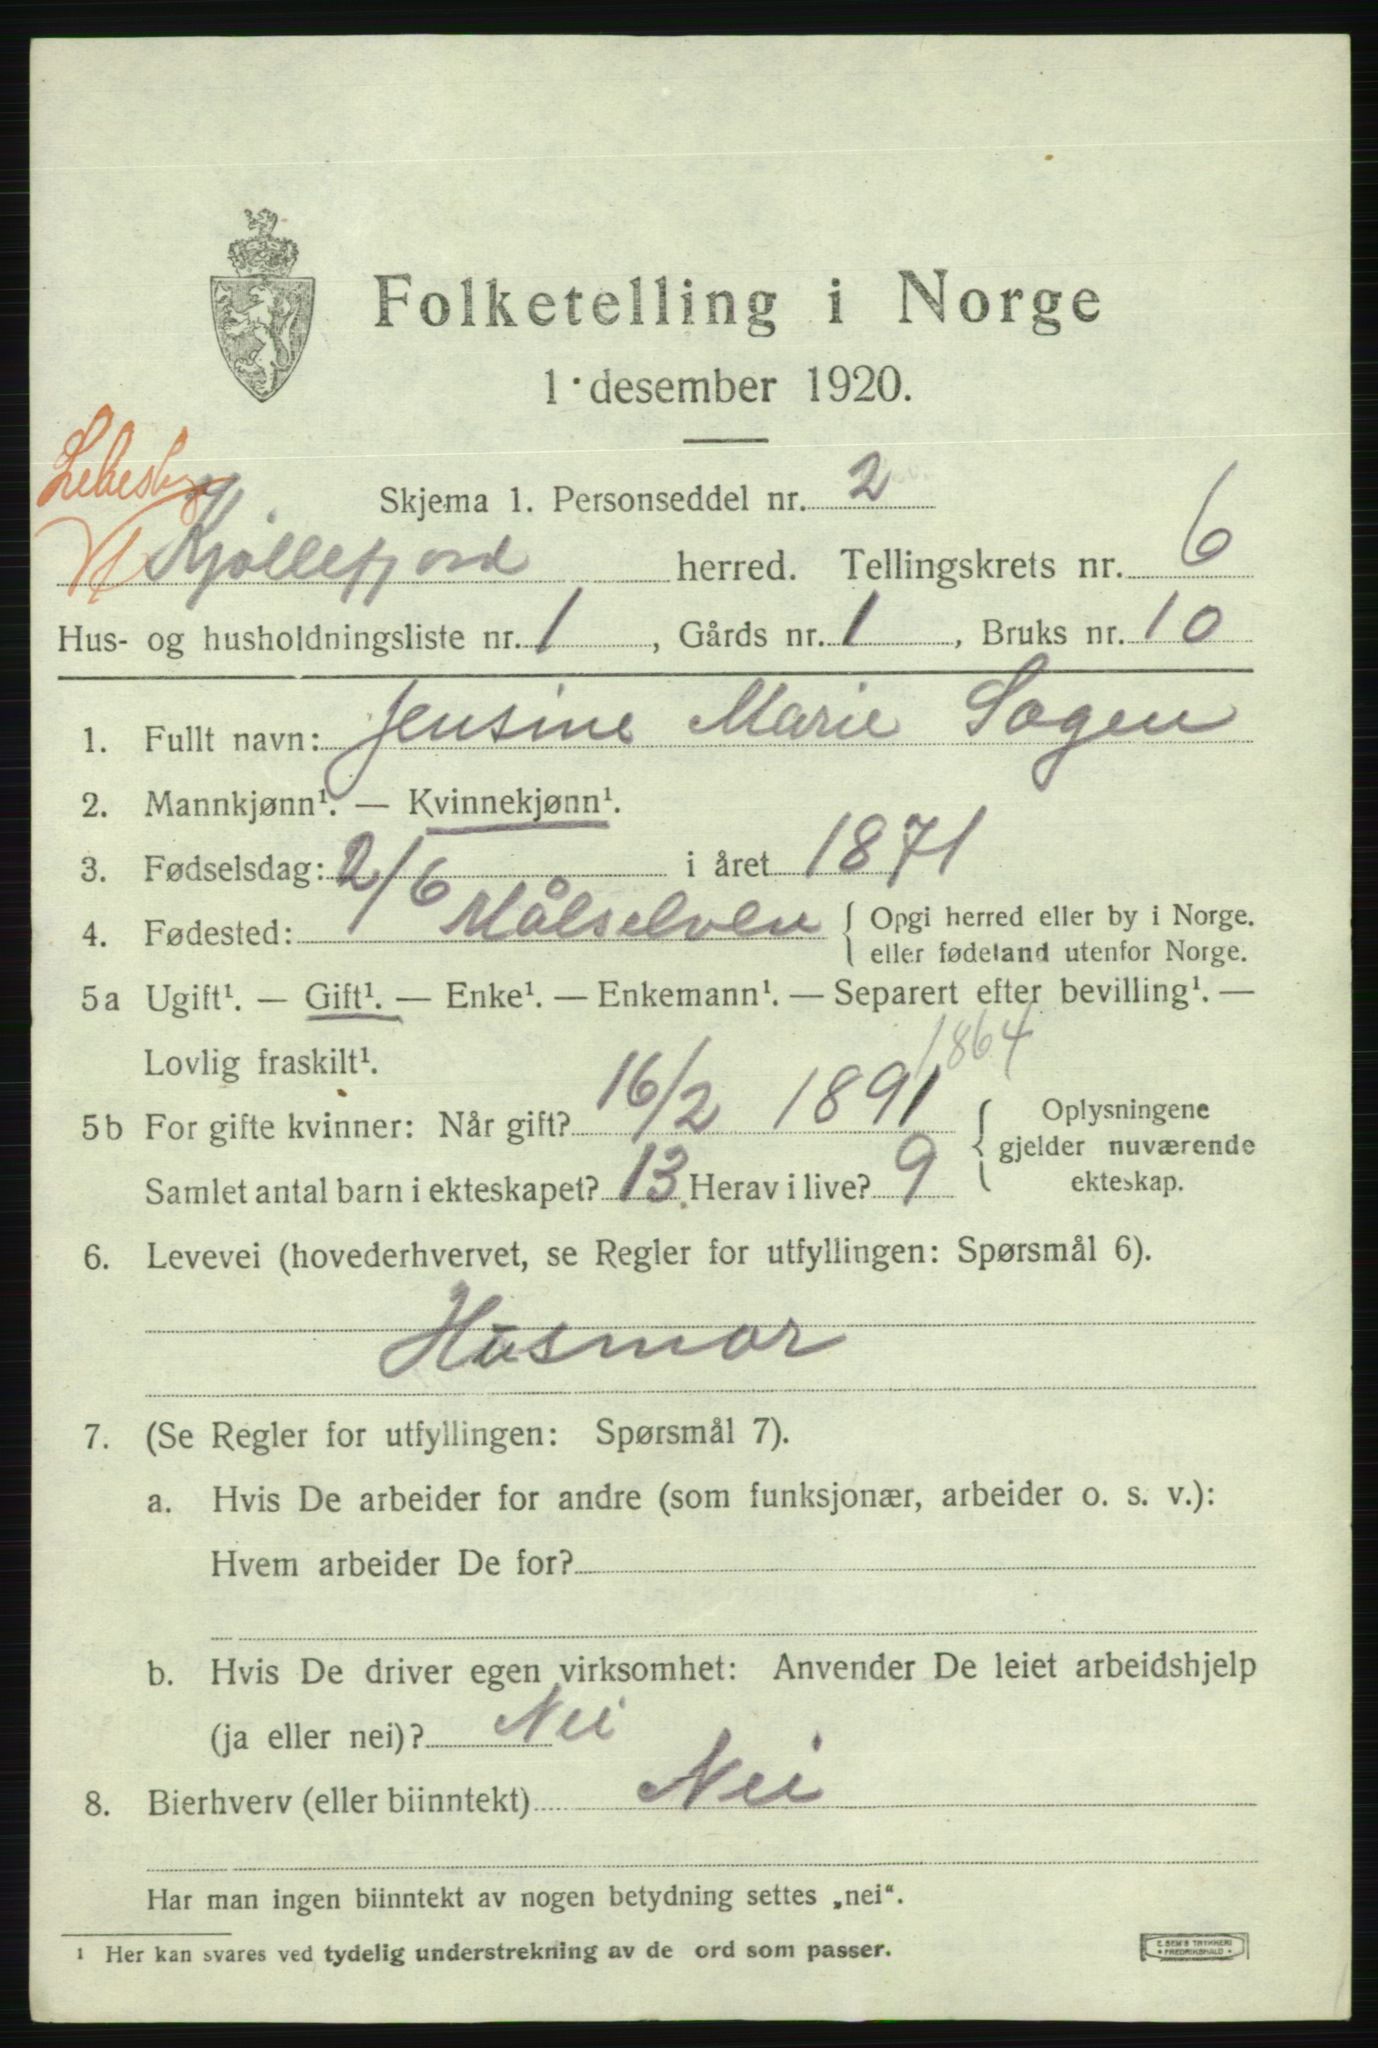 Folketelling i Norge
1. desember 1920.
Lebesby
Skjema 1. Personseddel nr. 2
Kjöllefjord herred. Tellingskrets nr. 6
Hus- og husholdningsliste nr. 1, Gårds nr. 1, Bruks nr. 10
1. Fullt navn: Jensine Marie Sagen
2. Mannkjønn¹. — Kvinnekjønn¹.
3. Fødselsdag: 2/6 i året 1871
4. Fødested: Målselven { Opgi herred eller by i Norge.
eller fødeland utenfor Norge.
5a Ugift¹. — Gift¹. — Enke¹. — Enkemann¹. — Separert efter bevilling¹. —
Lovlig fraskilt¹. 1864
5b For gifte kvinner: Når gift? 16/2 1891 { Oplysningene
gjelder nuværende
Samlet antal barn i ekteskapet? 13. Herav i live? 9 ekteskap.
6. Levevei (hovederhvervet, se Regler for utfyllingen: Spørsmål 6).
Husmor
7. (Se Regler for utfyllingen: Spørsmål 7).
a. Hvis De arbeider for andre (som funksjonær, arbeider o. s. v.):
Hvem arbeider De for?
b. Hvis De driver egen virksomhet: Anvender De leiet arbeidshjelp
(ja eller nei)? Nei
8. Bierhverv (eller biinntekt) Nei
Har man ingen biinntekt av nogen betydning settes „nei“.
¹ Her kan svares ved tydelig understrekning av de ord som passer.
E. SEM'S TRYKKERI
• FREDRIKSHALD •